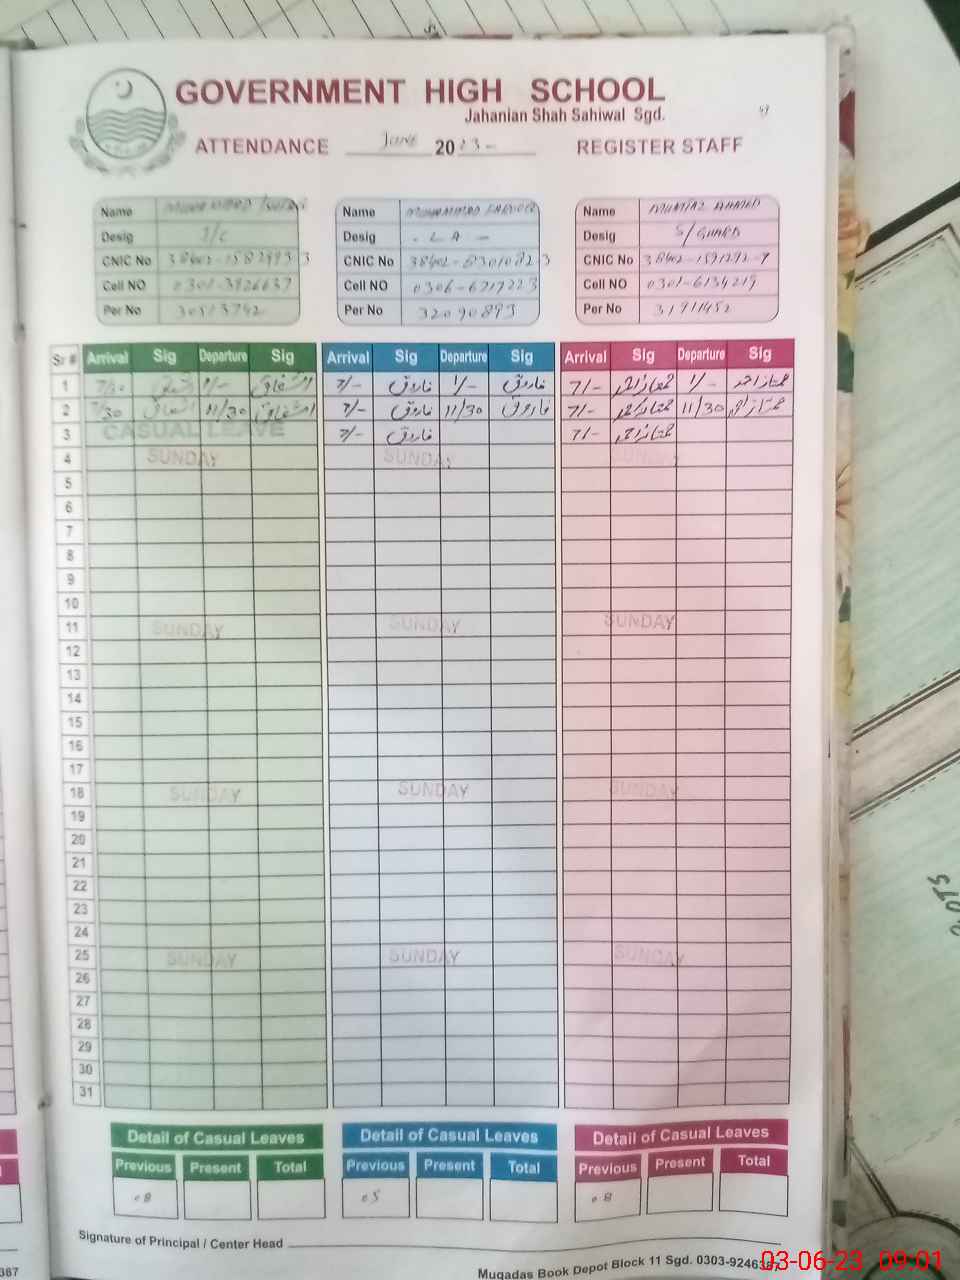 GOVERNMENT HIGH SCHOOL
Jahanian Shah Sahiwal Sgd.
ATTENDANCE June 2023- REGISTER STAFF
Name MUHAMMAD
Desig
CNIC No
Cell NO
Per No
Name MUHAMMAD FAROOQ
Desig . L A -
CNIC No
Cell NO
Per No 32090893
Name MUMTAZ AHMED
Desig S/GUARD
CNIC No
Cell NO 0301-6134219
Per No 31911452
Sr # Arrival Sig Departure Sig Arrival Sig Departure Sig Arrival Sig Departure Sig
1 7/30 1/- اشفاق 7/- فاروق 1/- فاروق 7/- ممتاز احمد 1/- ممتاز احمد
2 7/30 اشفاق 11/30 اشفاق 7/- فاروق 11/30 فاروق 7/- ممتاز احمد 11/30 ممتاز احمد
3 CASUAL LEAVE 7/- فاروق 7/- ممتاز احمد
4 SUNDAY SUNDAY SUNDAY
5
6
7
8
9
10
11 SUNDAY SUNDAY SUNDAY
12
13
14
15
16
17
18 SUNDAY SUNDAY SUNDAY
19
20
21
22
23
24
25 SUNDAY SUNDAY SUNDAY
26
27
28
29
30
31
Detail of Casual Leaves Detail of Casual Leaves Detail of Casual Leaves
Previous Present Total Previous Present Total Previous Present Total
08 05 08
Signature of Principal / Center Head
Muqadas Book Depot Block 11 Sgd. 0303-9246387
387
03-06-23 09:01